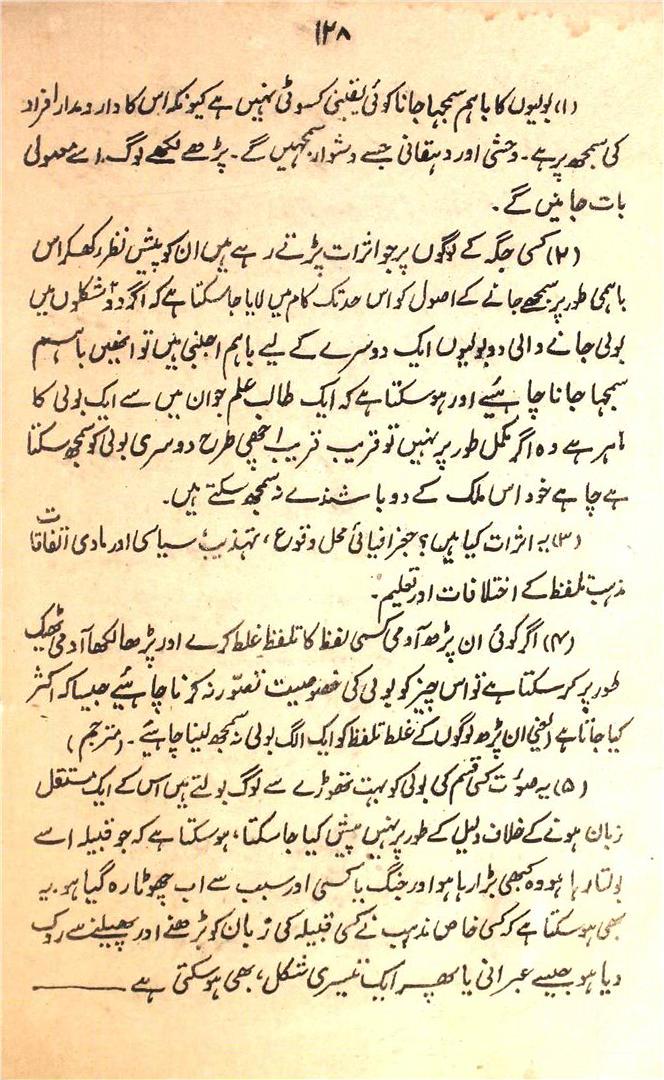 ۱۲۸
(۱) بولیوں کا باہم سمجھا جانا کوئی یقینی کسوٹی نہیں ہے کیونکہ اس کا دار و مدار افراد
کی سمجھ پر ہے۔ وحشی اور دہقانی جسے دشوار سمجھیں گے۔ پڑھے لکھے لوگ اسے معمولی
بات جانیں گے۔
(۲) کسی جگہ کے لوگوں پر جو اثرات پڑتے رہے ہیں ان کو پیش نظر رکھ کر اس
باہمی طور پر سمجھے جانے کے اصول کو اس حد تک کام میں لایا جا سکتا ہے کہ اگر دو شکلوں میں
بولی جانے والی دو بولیوں ایک دوسرے کے لیے باہم اجنبی ہیں تو انھیں باہم
سمجھا جانا چاہئیے اور ہو سکتا ہے کہ ایک طالب علم جو ان میں سے ایک بولی کا
ماہر ہے وہ اگر مکمل طور پر نہیں تو قریب قریب اچھی طرح دوسری بولی کو سمجھ سکتا
ہے چاہے خود اس ملک کے دو باشندے نہ سمجھ سکتے ہیں۔
(۳) یہ اثرات کیا ہیں؟ جغرافیائی محل وقوع، تہذیب، سیاسی اور مادی اتفاقات
مذہب تلفظ کے اختلافات اور تعلیم۔
(۴) اگر کوئی ان پڑھ آدمی کسی لفظ کا تلفظ غلط کرے اور پڑھا لکھا آدمی ٹھیک
طور پر کر سکتا ہے تو اس چیز کو بولی کی خصوصیت تصوّر نہ کرنا چاہئیے جیسا کہ اکثر
کیا جاتا ہے (یعنی ان پڑھ لوگوں کے غلط تلفظ کو ایک الگ بولی نہ سمجھ لینا چاہئے۔ (مترجم)
(۵) یہ صورت کسی قسم کی بولی کو بہت تھوڑے سے لوگ بولتے ہیں اس کے ایک مستقل
زبان ہونے کے خلاف دلیل کے طور پر نہیں پیش کیا جا سکتا، ہو سکتا ہے کہ جو قبیلہ اسے
بولتا رہا ہو وہ کبھی بڑا رہا ہو اور جنگ یا کسی اور سبب سے اب چھوٹا رہ گیا ہو۔ یہ
بھی ہو سکتا ہے کہ کسی خاص مذہب نے کسی قبیلہ کی زبان کو بڑھنے اور پھیلنے سے روک
دیا ہو جیسے عبرانی یا پھر ایک تیسری شکل، بھی ہو سکتی ہے